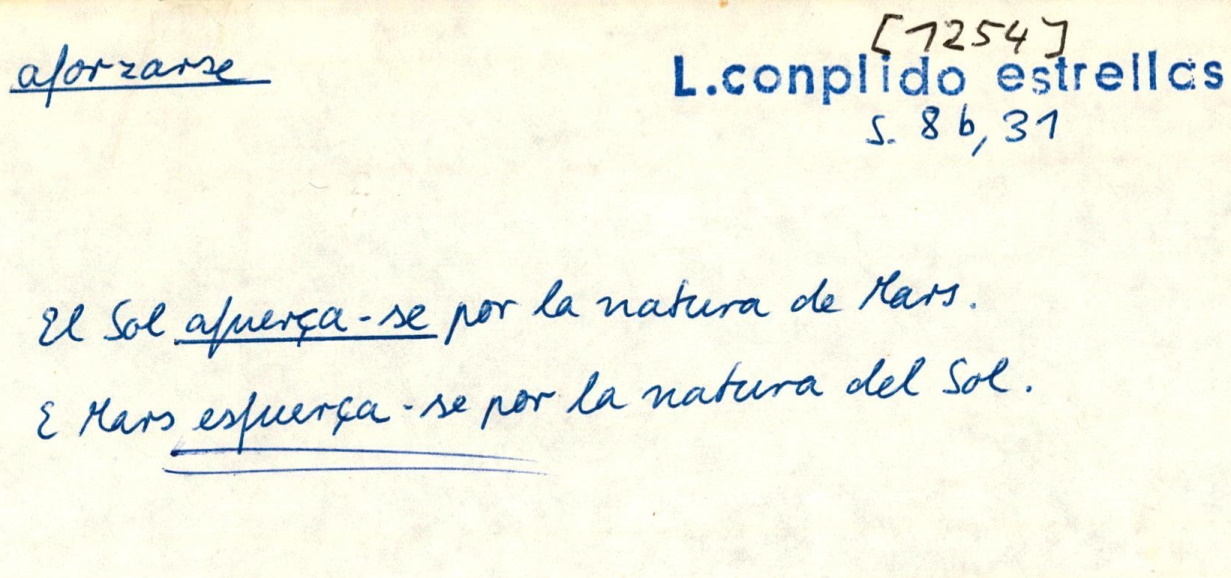 aforzarse
[1254]
L.conplido estrellas
S. 8b,31
El Sol afuerça-se por la natura de Mars.
E Mars esfuerça-se por la natura del Sol.